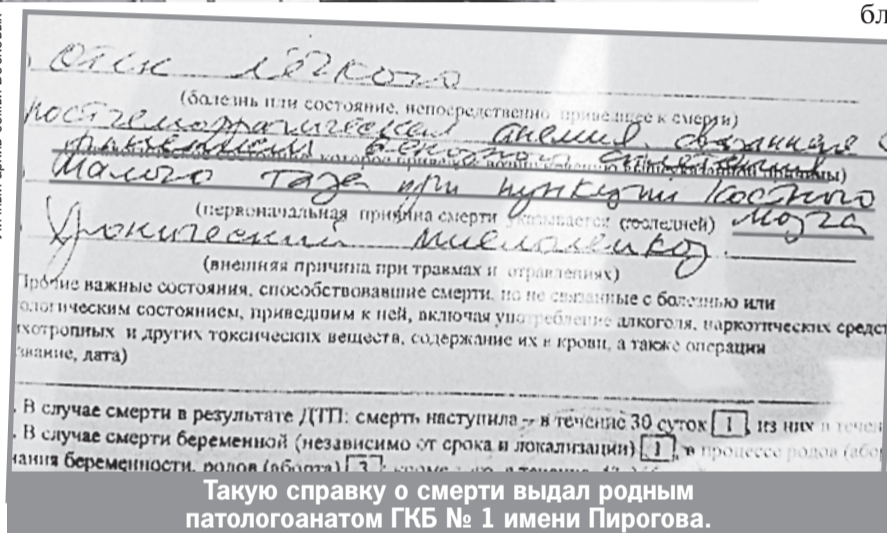 бл
Отек лёгкого
(болезнь или состояние, непосредственно приведшее к смерти)
постгеморрагическая анемия, связанная с
ранением венозного сплетения
малого таза при пункции костного
(первоначальная причина смерти указывается последней) мозга
Хронический миелолейкоз.
(внешняя причина при травмах и отравлениях)
Прочие важные состояния, способствовавшие смерти, но не связанные с болезнью или
ологическим состоянием, приведшим к ней, включая употребление алкоголя, наркотических средст
хотропных и других токсических веществ, содержание их в крови, а также операции
звание, дата)
. В случае смерти в результате ДТП: смерть наступила – в течение 30 суток 1, из них в течен
. В случае смерти беременной (независимо от срока и локализации) 1, в процессе родов (або
чания беременности, родов (аборта) 3
Такую справку о смерти выдал родным
патологоанатом ГКБ № 1 имени Пирогова.